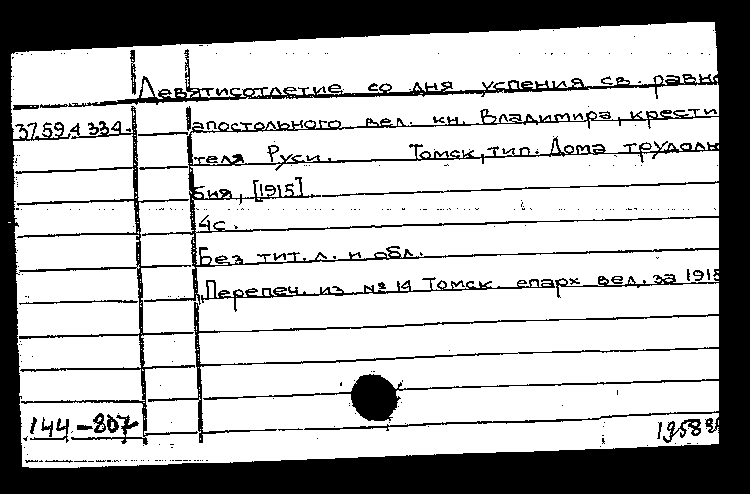 Девятисотлетие со дня успения св. равно
37.59.4 334. апостольного вел. кн. Владимира, крести
теля Руси. Томск, тип. Дома трудолю
бия, [1915].
4с.
Без тит. л. и обл.
Перепеч. из № 14 Томск. епарх вед. за 1915
144-807
1958